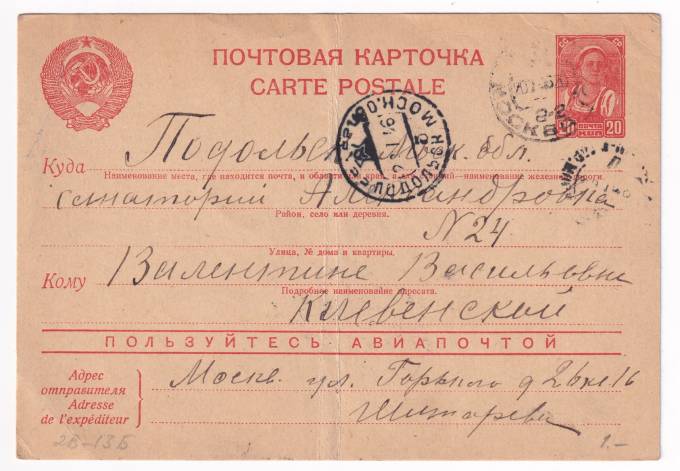 ПОЧТОВАЯ КАРТОЧКА
CARTE POSTALE
ПОЧТА
20 КОП
МОСКВА
ПОДОЛЬСК МОСК. ОБЛ.
Подольск Моск. обл.
Куда
Наименование места, где находится почта, и области или края, а для станций—наименование железной дороги.
санаторий Александровка
Район, село или деревня.
N 24
Улица, № дома и квартиры.
Кому Валентине Васильевне
Подробное наименование адресата.
Киевенской
ПОЛЬЗУЙТЕСЬ АВИАПОЧТОЙ
Адрес
отправителя
Adresse
de l'expéditeur
Москва ул. Горького д 26 кв. 16
2Б-13Б
1.-